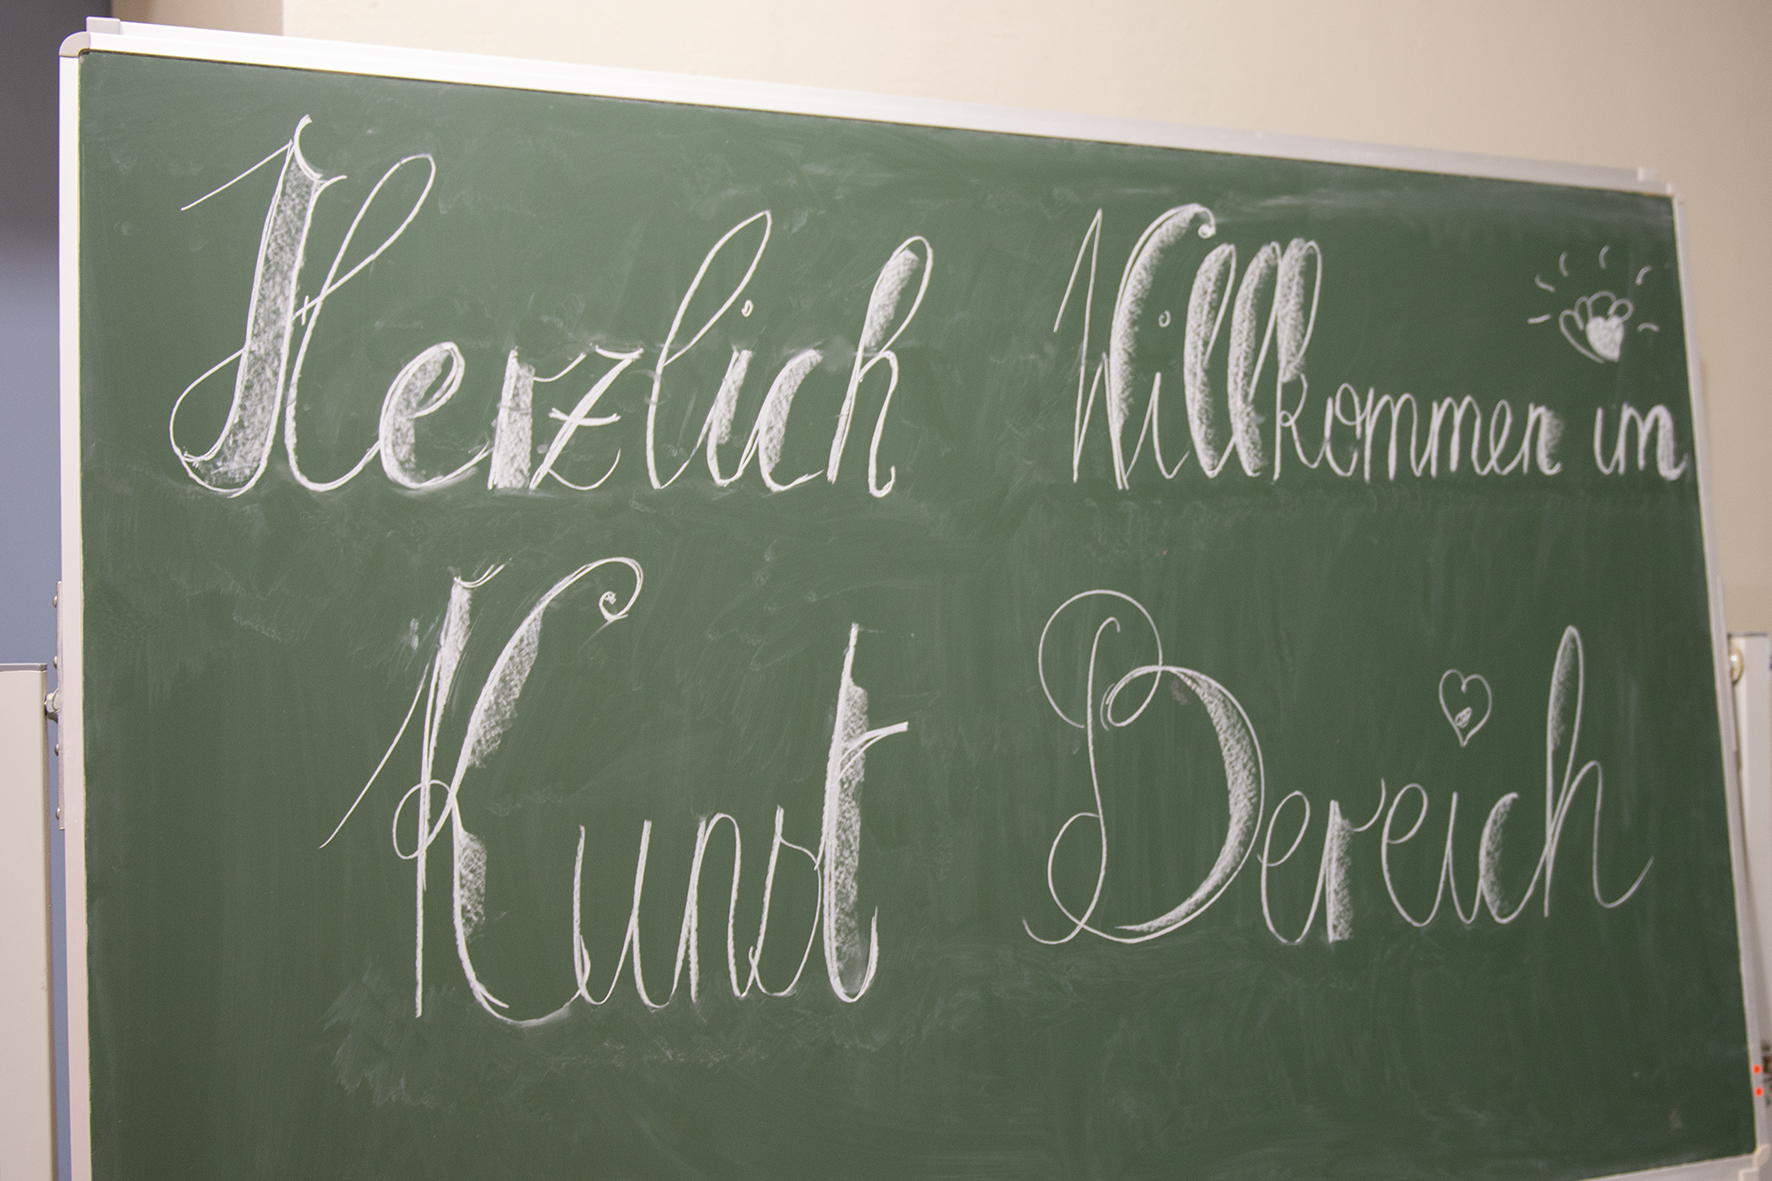 Herzlich Willkommen im
Kunst Bereich